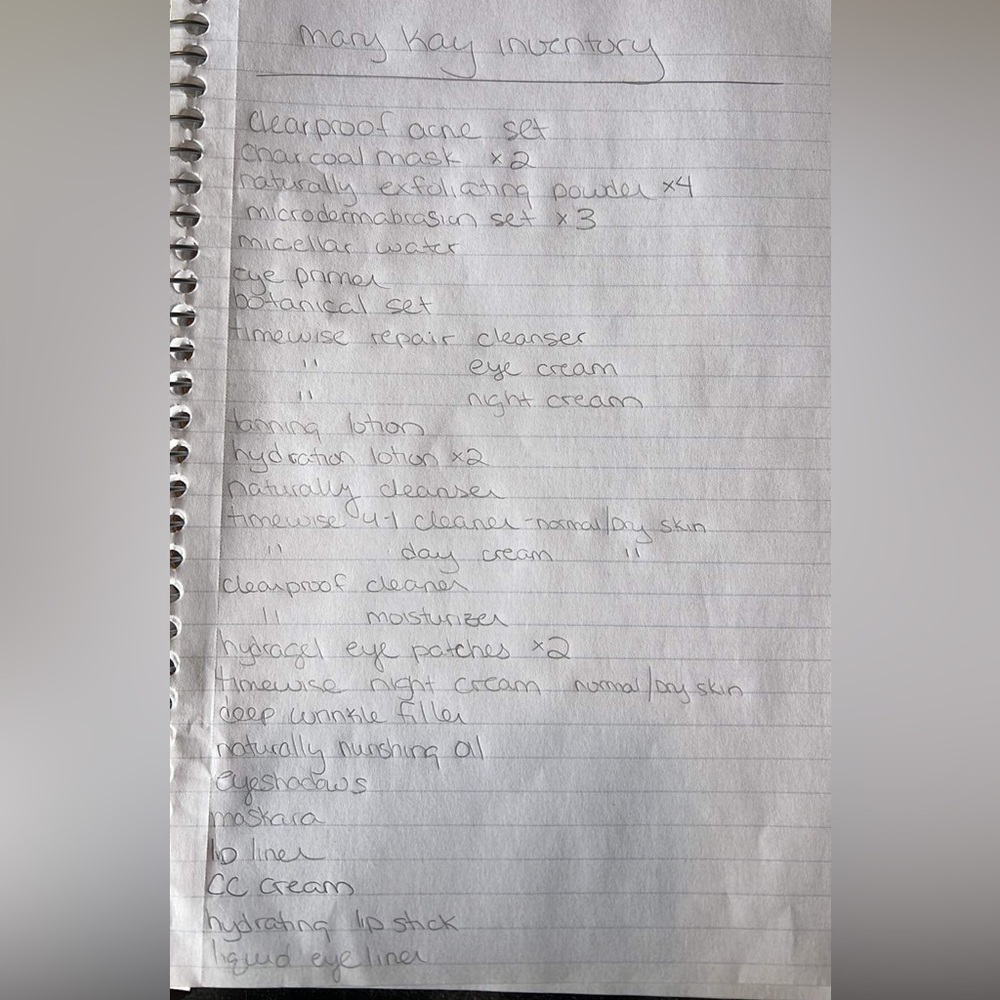 mary kay inventory
clearproof acne set
charcoal mask x2
naturally exfoliating powder x4
microdermabrasion set x3
micellar water
eye primer
botanical set
timewise repair cleanser
" eye cream
" night cream
tanning lotion
hydration lotion x2
naturally cleanser
timewise 4-1 cleaner - normal/Dry skin
" day cream "
clearproof cleaner
" moisturizer
hydragel eye patches x2
timewise night cream normal/Dry skin
deep wrinkle filler
naturally nurishing oil
eyeshadows
maskara
lip liner
CC cream
hydrating lip stick
liquid eyeliner